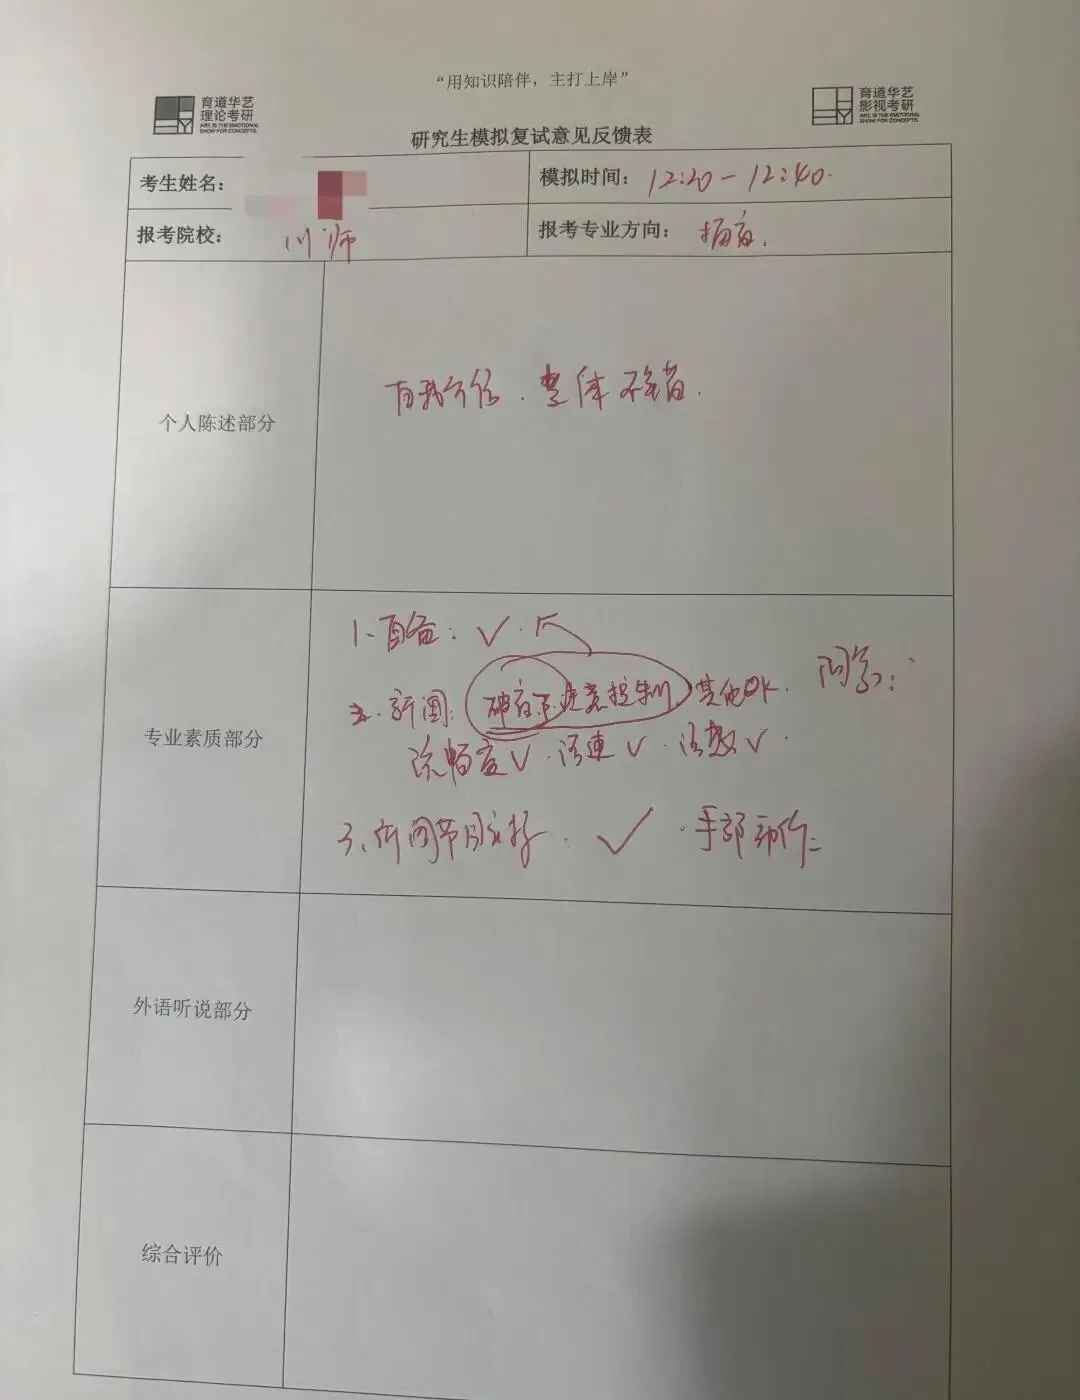 “用知识陪伴，主打上岸”
育道华艺
理论考研
ART, IS THE EMOTIONAL
SHOW FOR CONCEPTS.
育道华艺
影视考研
ART, IS THE EMOTIONAL
SHOW FOR CONCEPTS.
研究生模拟复试意见反馈表
考生姓名：
模拟时间： 12:20 — 12:40.
报考院校： 川师
报考专业方向： 播音.
个人陈述部分
自我介绍. 整体不错.
专业素质部分
1、自备: ✓.
2. 新闻: 破音下注意控制 其他OK.
流畅度✓. 语速✓. ✓.
3、新闻节目主持. ✓. 手部动作
外语听说部分
综合评价